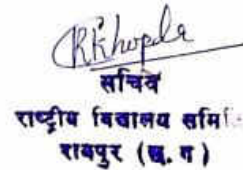 RKhopda
सचिव
राष्ट्रीय विद्यालय समिति
रायपुर (छ. ग)